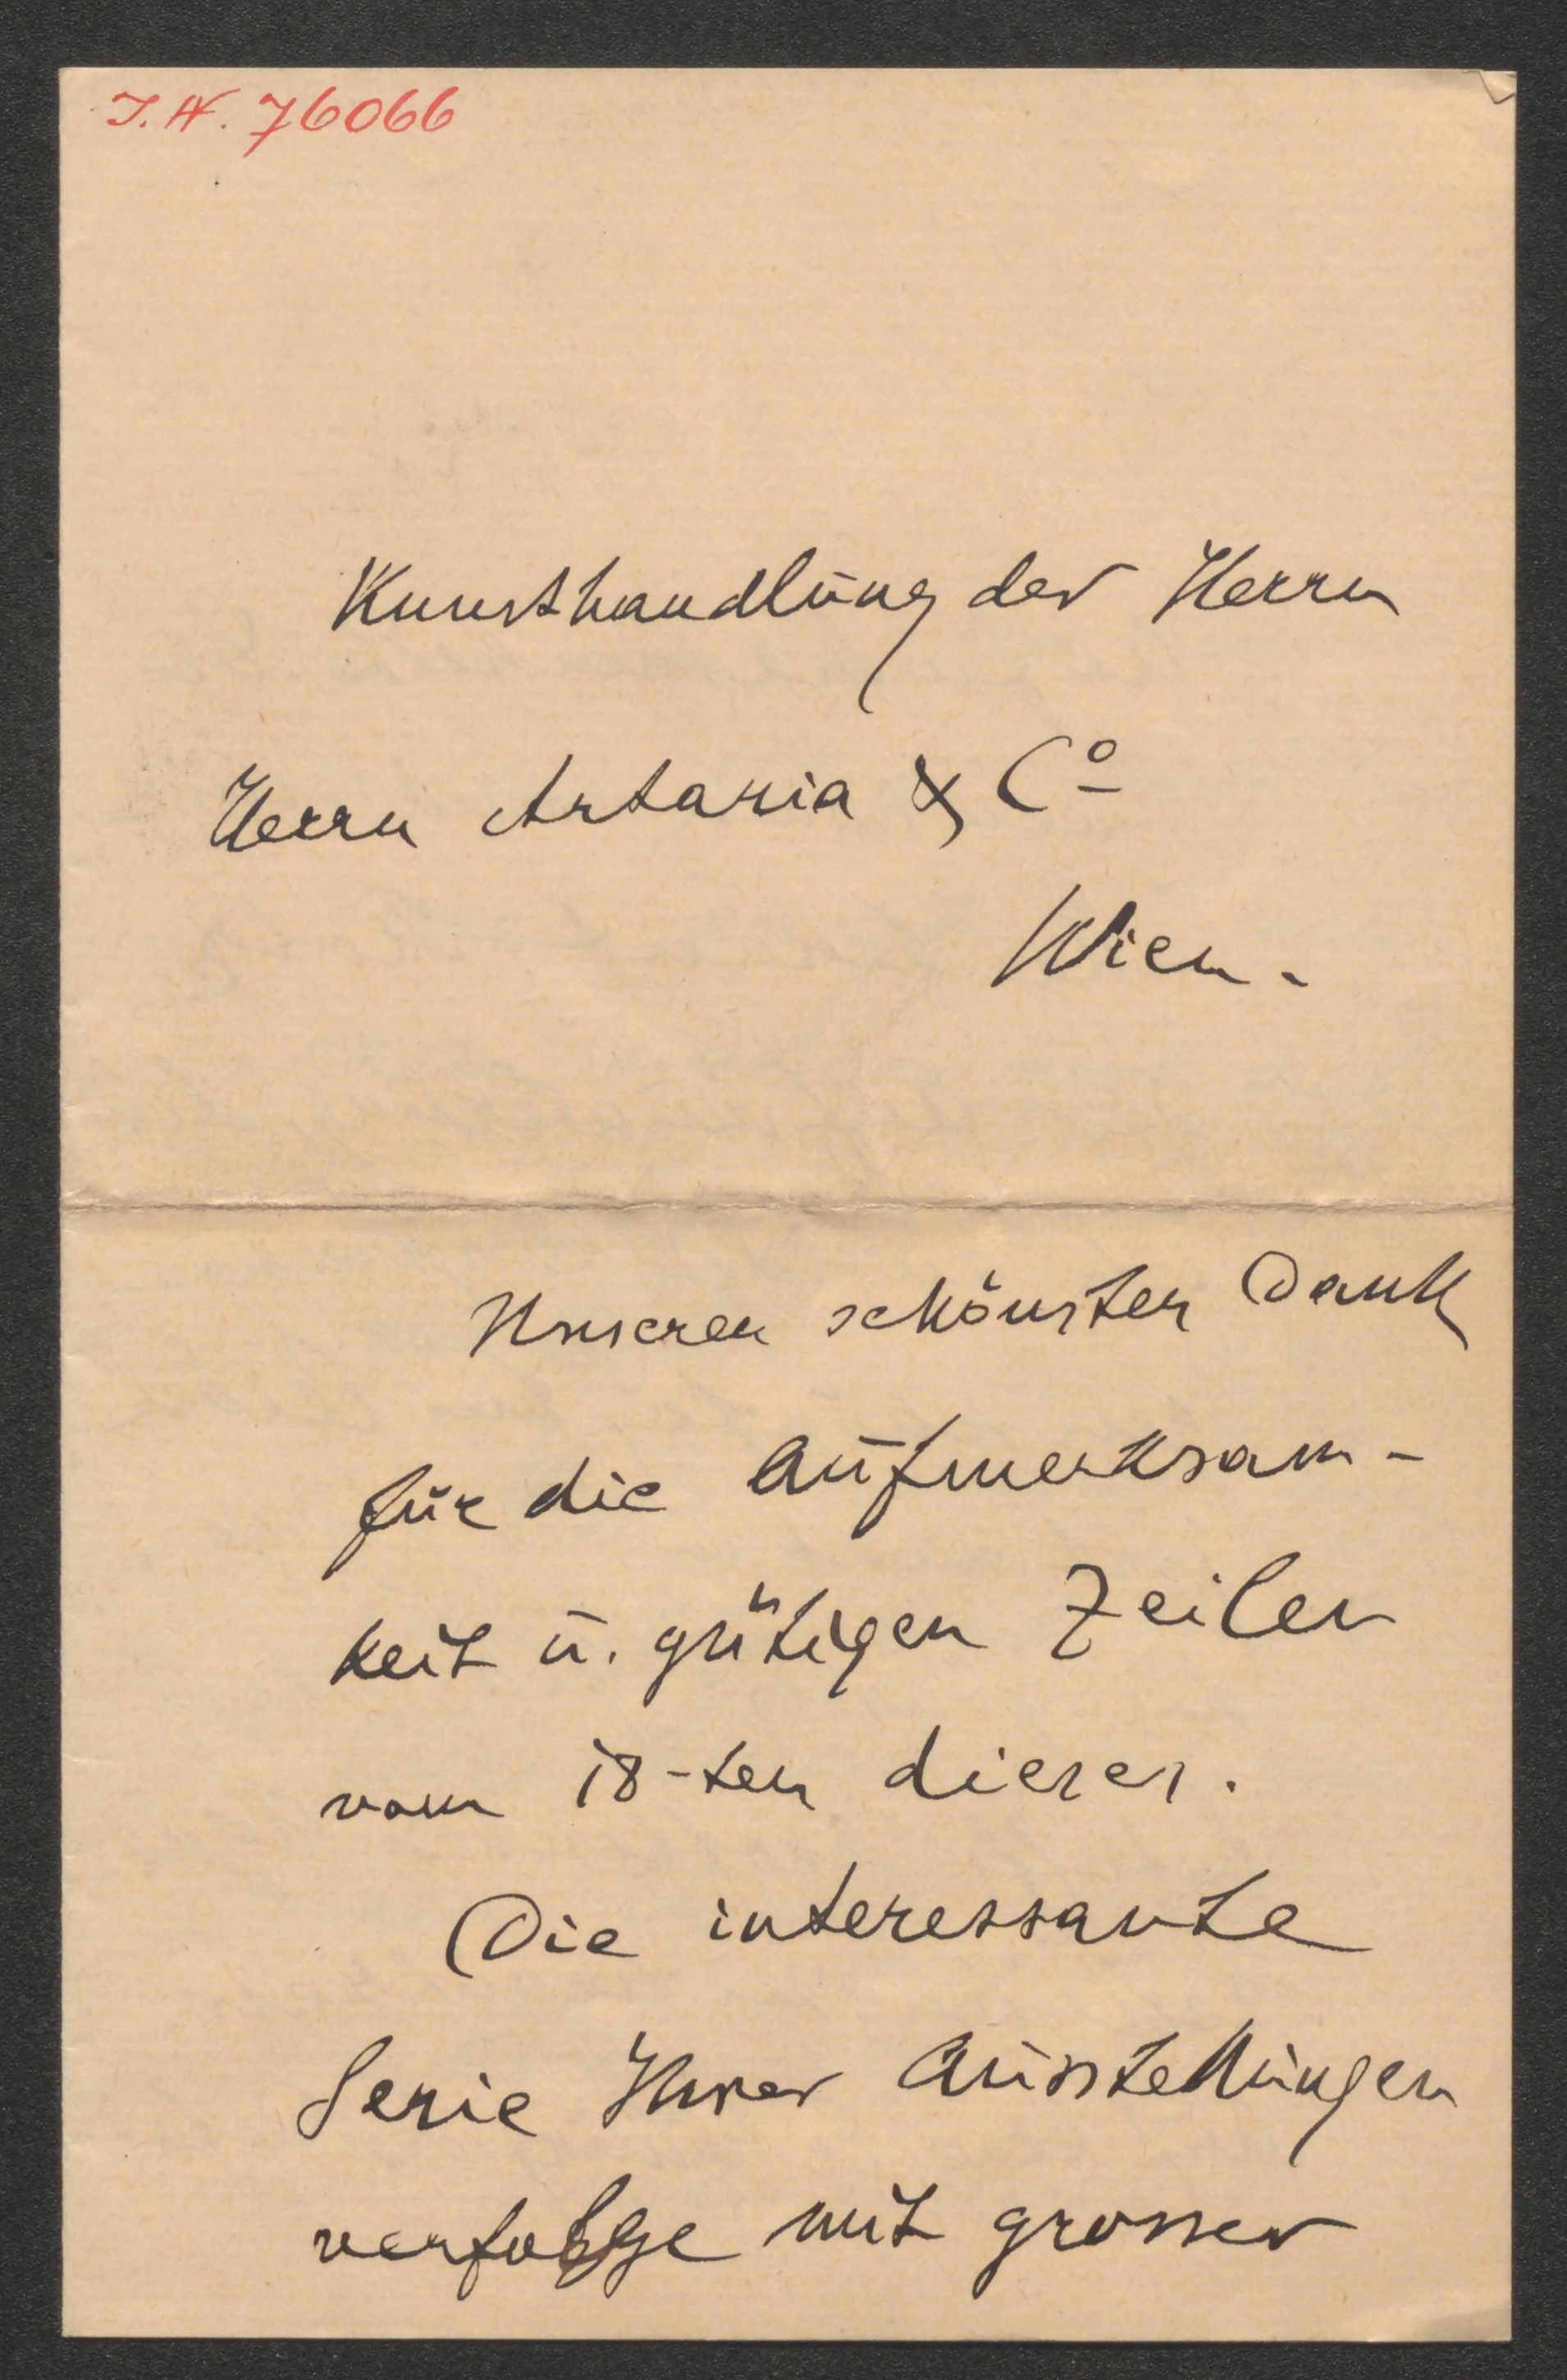 I.N. 76066
Kunsthandlung der Herrn
Herrn Artaria & Co
Wien.
Unseren schönsten Dank
für die Aufmerksam-
keit u. gütigen Zeilen
vom 18-ten dieses.
Die interessante
Serie Ihrer Ausstellungen
verfolge mit grosser